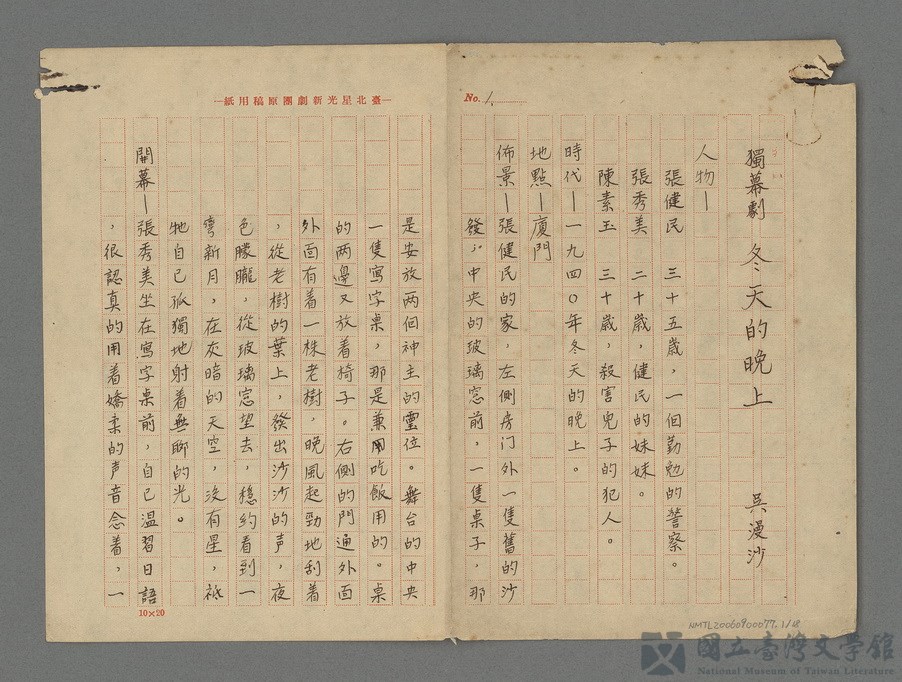 No. 1
獨幕劇 冬天的晚上 吳漫沙
人物—
張健民 三十五歲，一個勤勉的警察。
張秀美 二十歲，健民的妹妹。
陳素玉 三十歲，殺害兒子的犯人。
時代—一九四〇年冬天的晚上。
地點—廈門
佈景—張健民的家，左側房门外一隻舊的沙
發；中央的玻璃窓前，一隻桌子，那
—臺北星光新劇團原稿用紙—
是安放两個神主的靈位。舞台的中央
一隻寫字桌，那是兼用吃飯用的。桌
的两邊又放着椅子。右側的門通外面
外面有着一株老樹，晚風起勁地刮着
，從老樹的葉上，發出沙沙的声，夜
色朦朧，從玻璃窓望去，穏約看到一
彎新月，在灰暗的天空，没有星，祗
牠自已孤獨地射着無聊的光。
開幕—張秀美坐在寫字桌前，自己溫習日語
，很認真的用着嬌柔的声音念着，一
10×20
NMTL20060900077.1/18
國立臺灣文學館
National Museum of Taiwan Literature